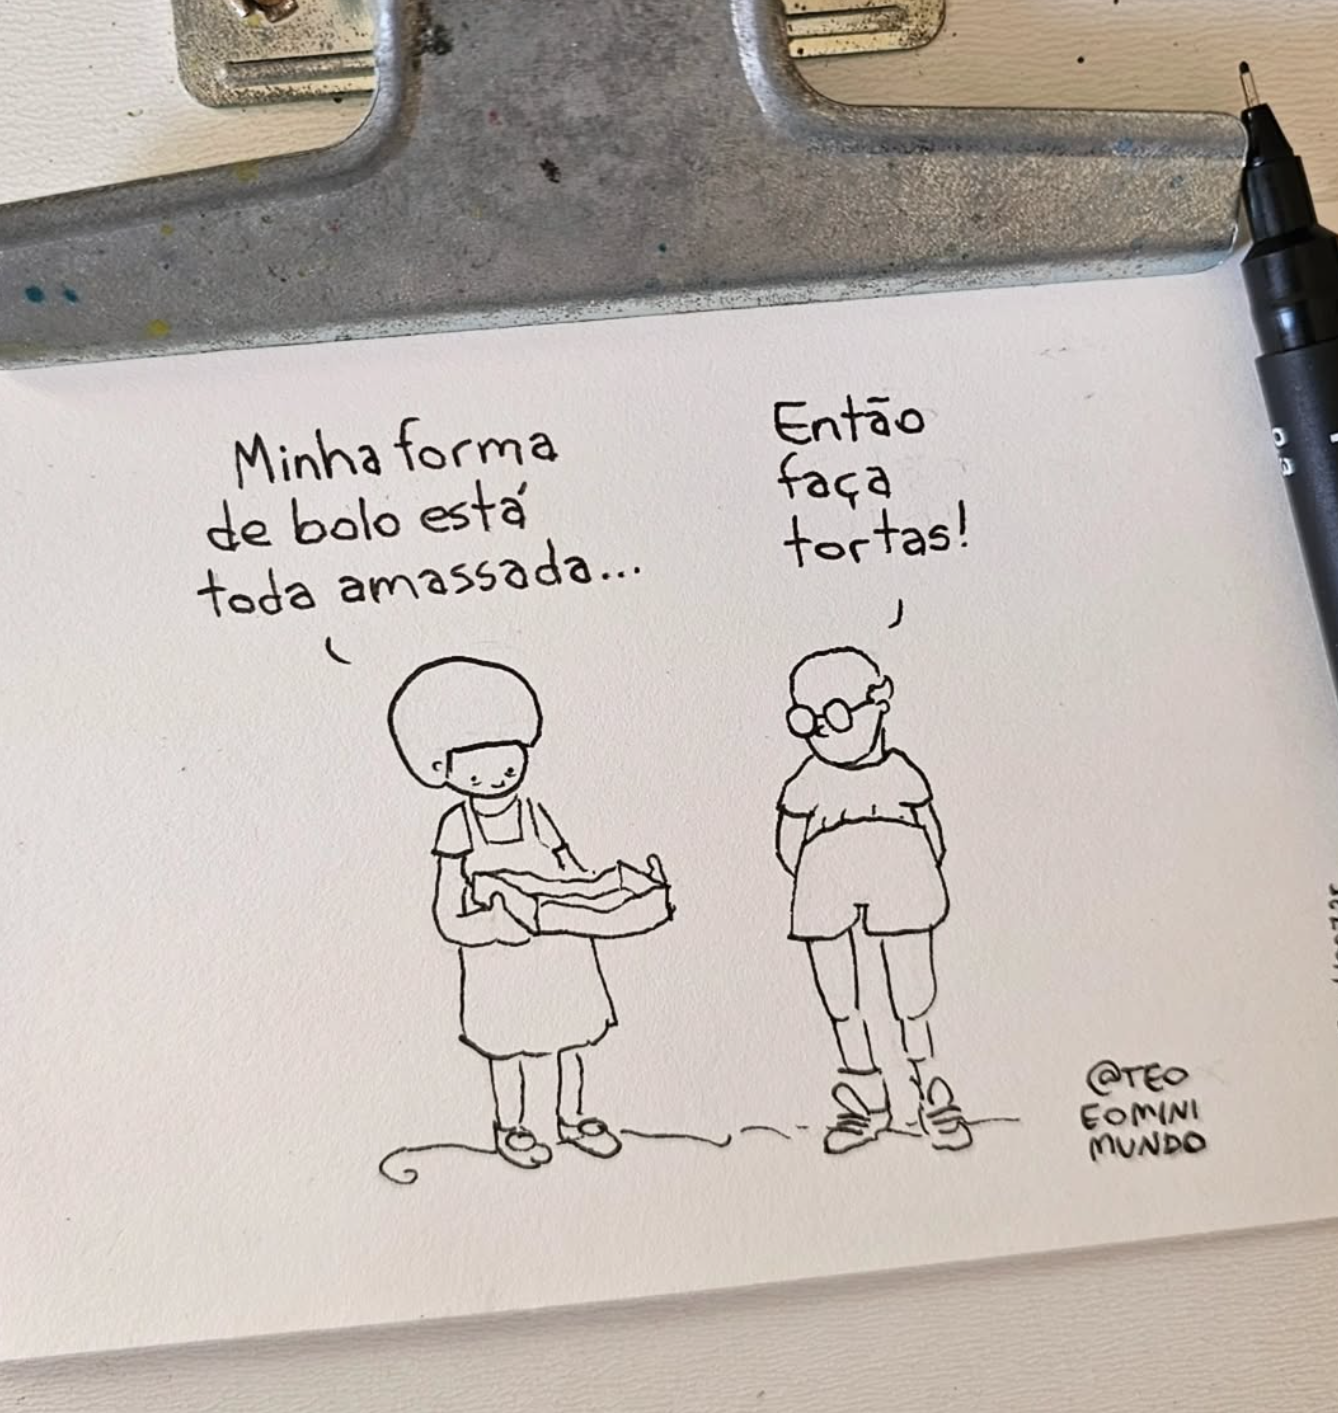 Minha forma
de bolo está
toda amassada...
Então
faça
tortas!
@TEO
EOMINI
MUNDO